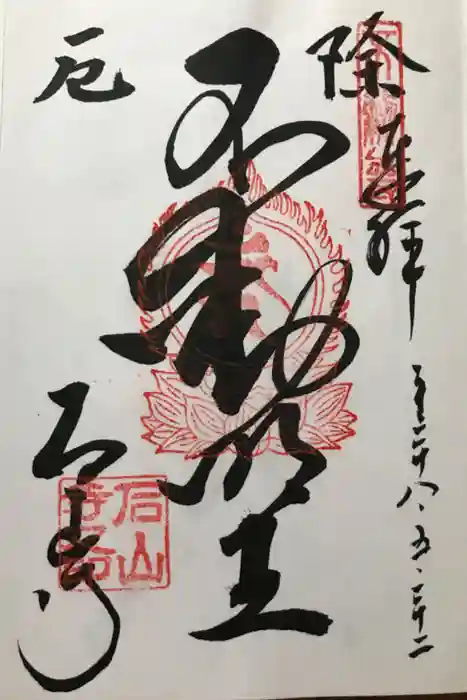 奉拝
二十八、五、二十二
除
不動明王
厄
石山寺
石山
寺印